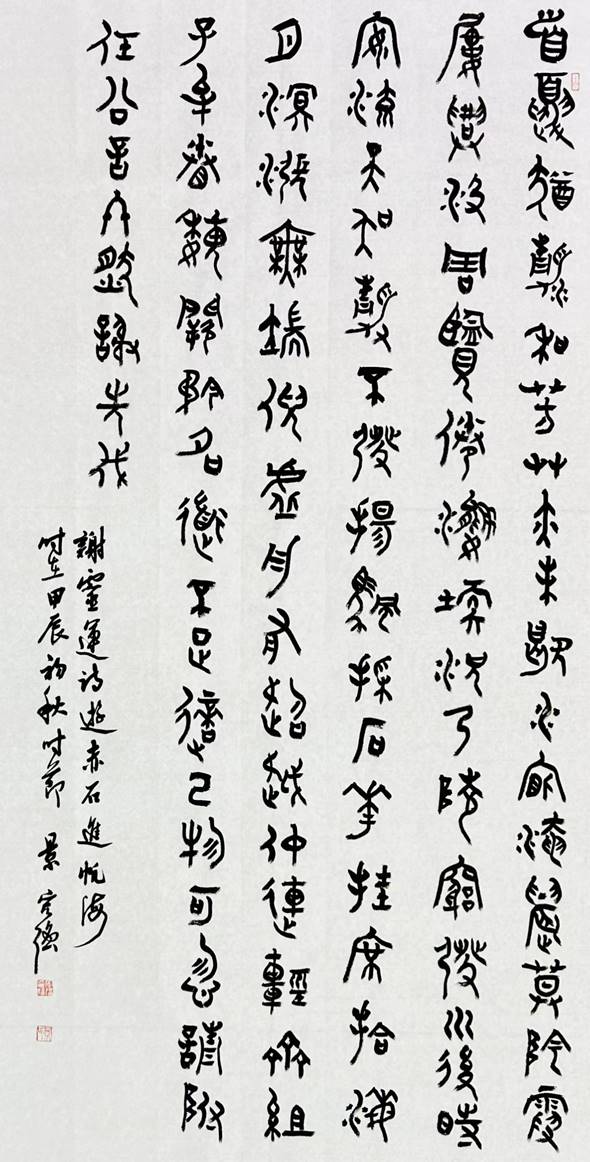 首夏猶清和芳艸亦未歇水宿淹晨莫陰霞
屢興沒周覽倦瀛壖況乃陵窮髮川後時
安流天吳靜不發揚帆採石華挂席拾海
月溟漲無端倪虛舟有超越仲連輕齊組
子牟眷魏闕矜名道不足適己物可忽請附
任公言終然謝先伐
謝靈運詩遊赤石進帆海
时在甲辰初秋时節 景